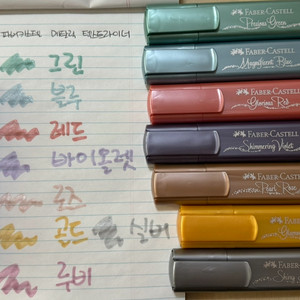 파버카스텔 메탈릭 텍스트라이너
그린
블루
레드
바이올렛
로즈
골드 실버
루비
FABER-CASTELL
Precious Green
FABER-CASTELL
Magnificent Blue
FABER-CASTELL
Glorious Red
FABER-CASTELL
Shimmering Violet
FABER-CASTELL
Pearl Rose
FABER-CASTELL
FABER-CASTELL
Shiny